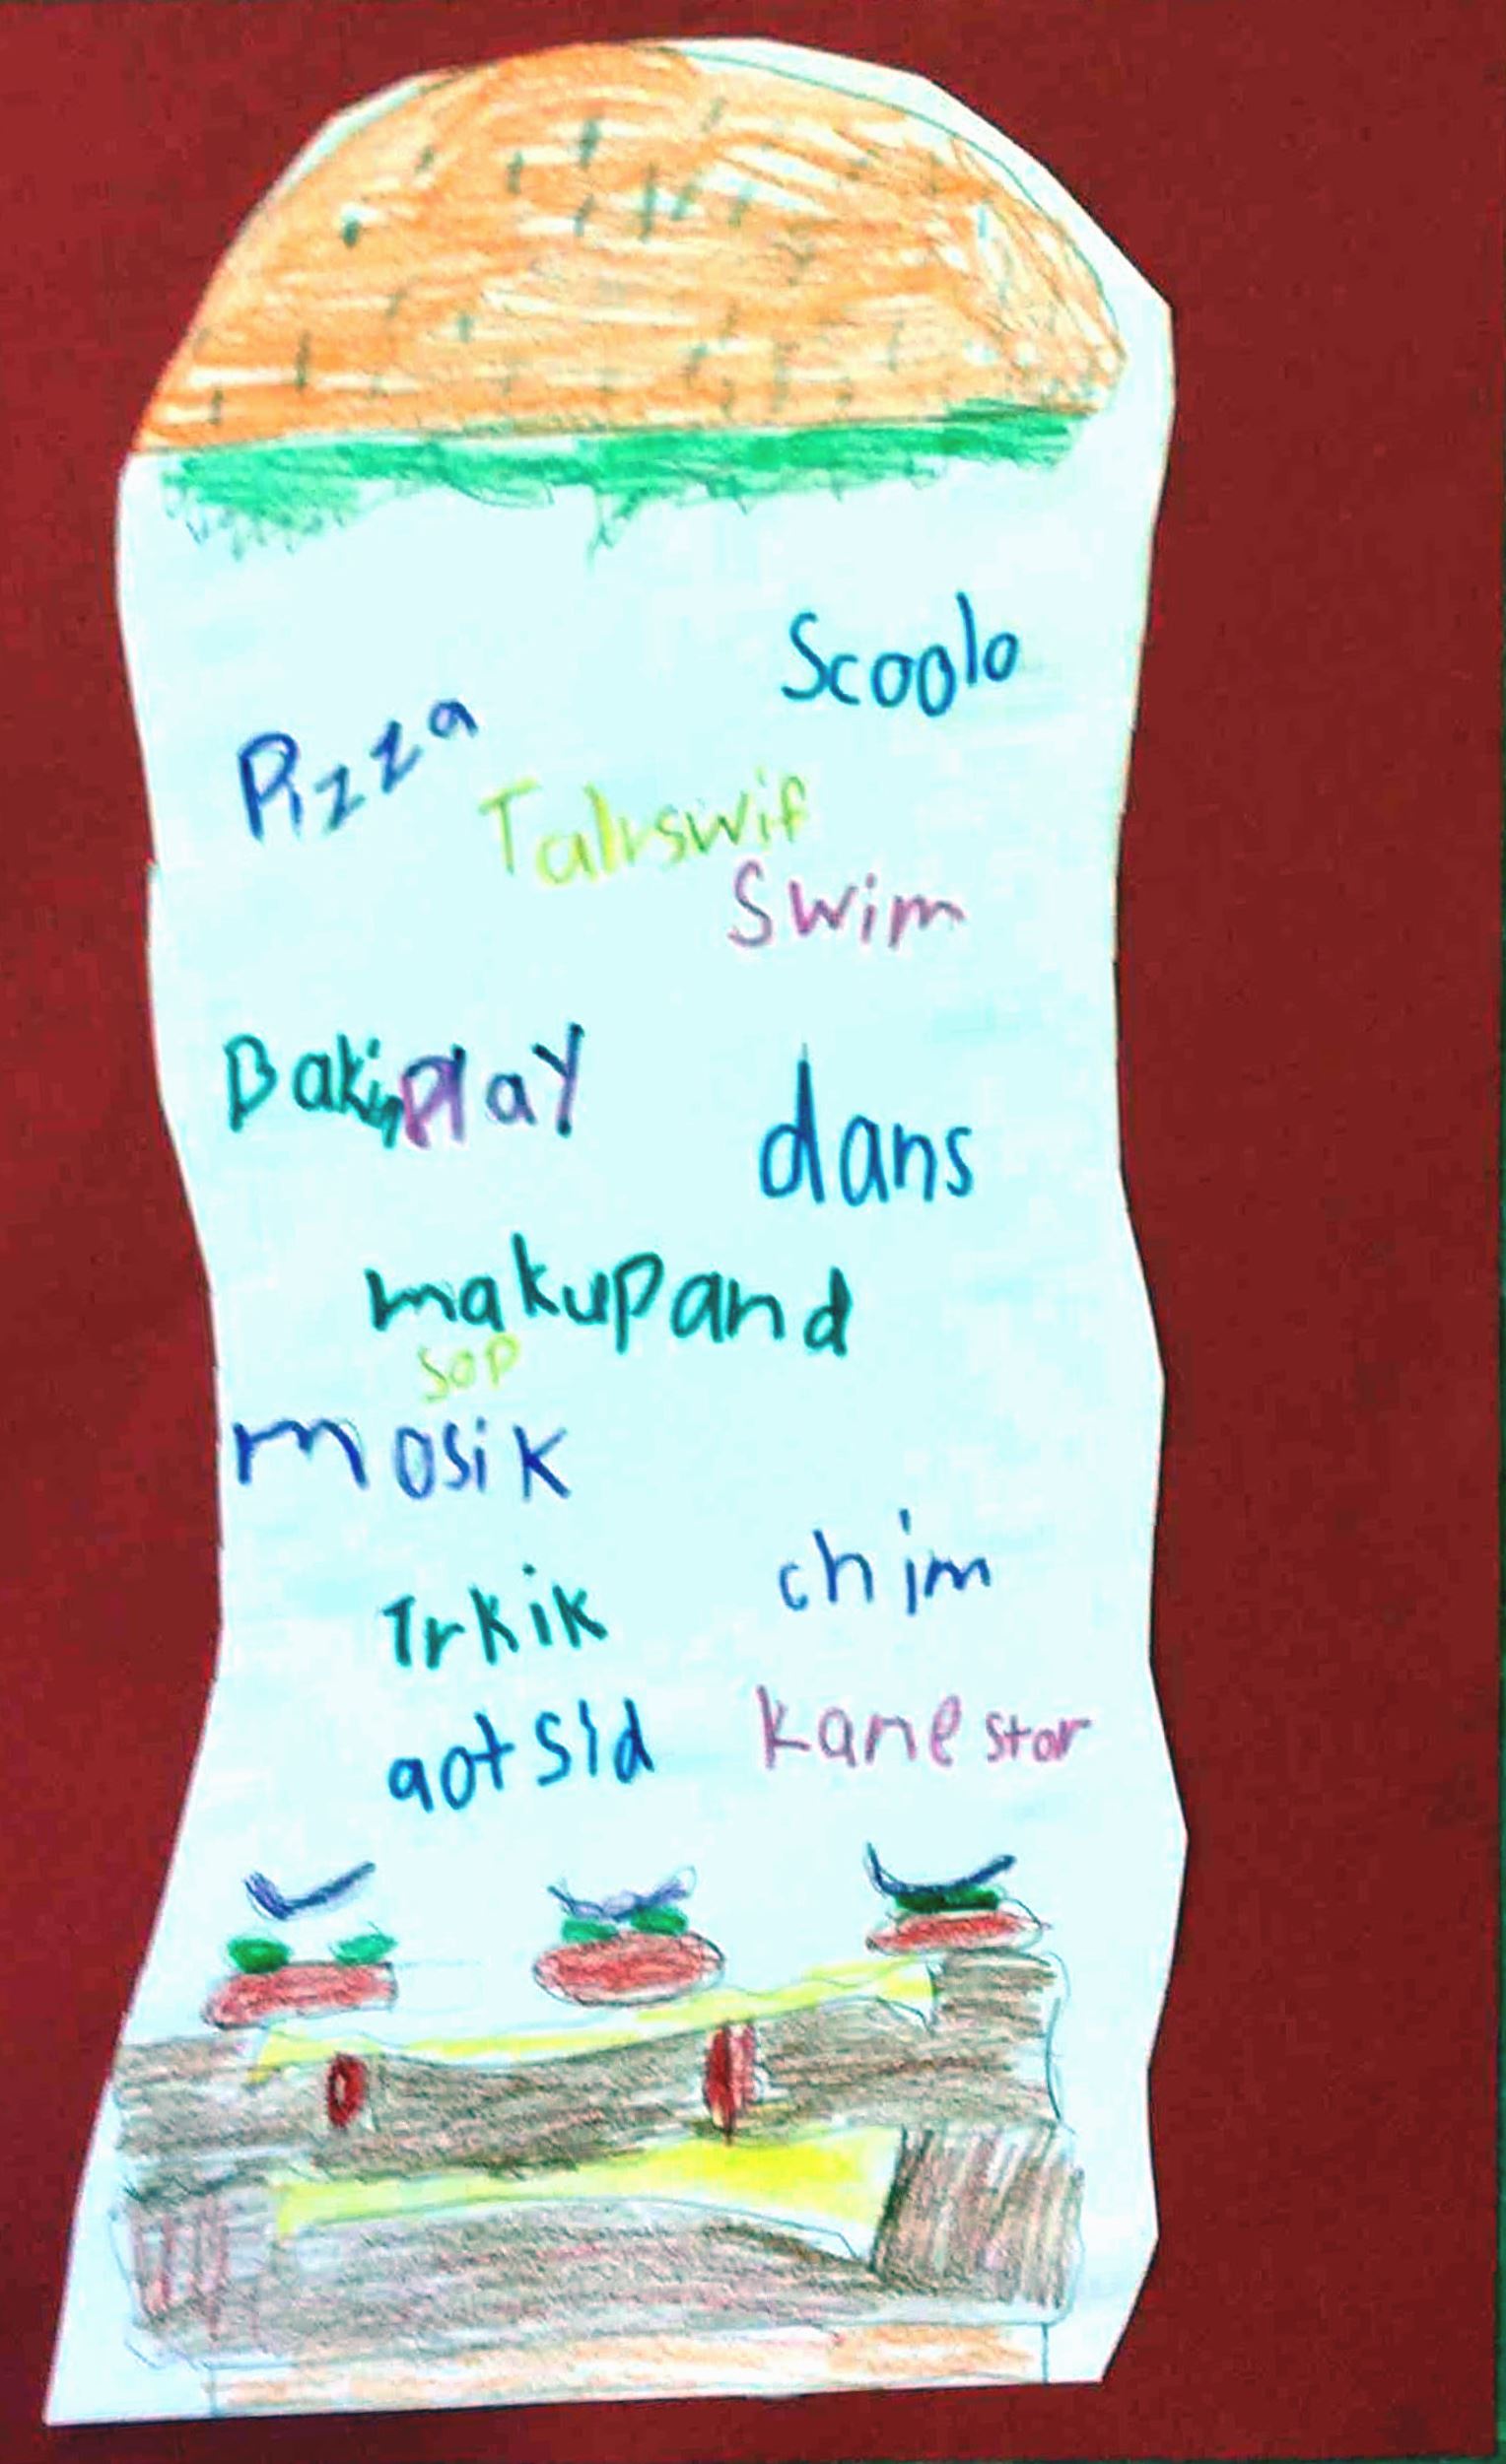 Scoolo
Pizza
Talrswif
Swim
Baking
Play
dans
makupand
sop
mosik
chim
Trkik
aotsid
kanestar